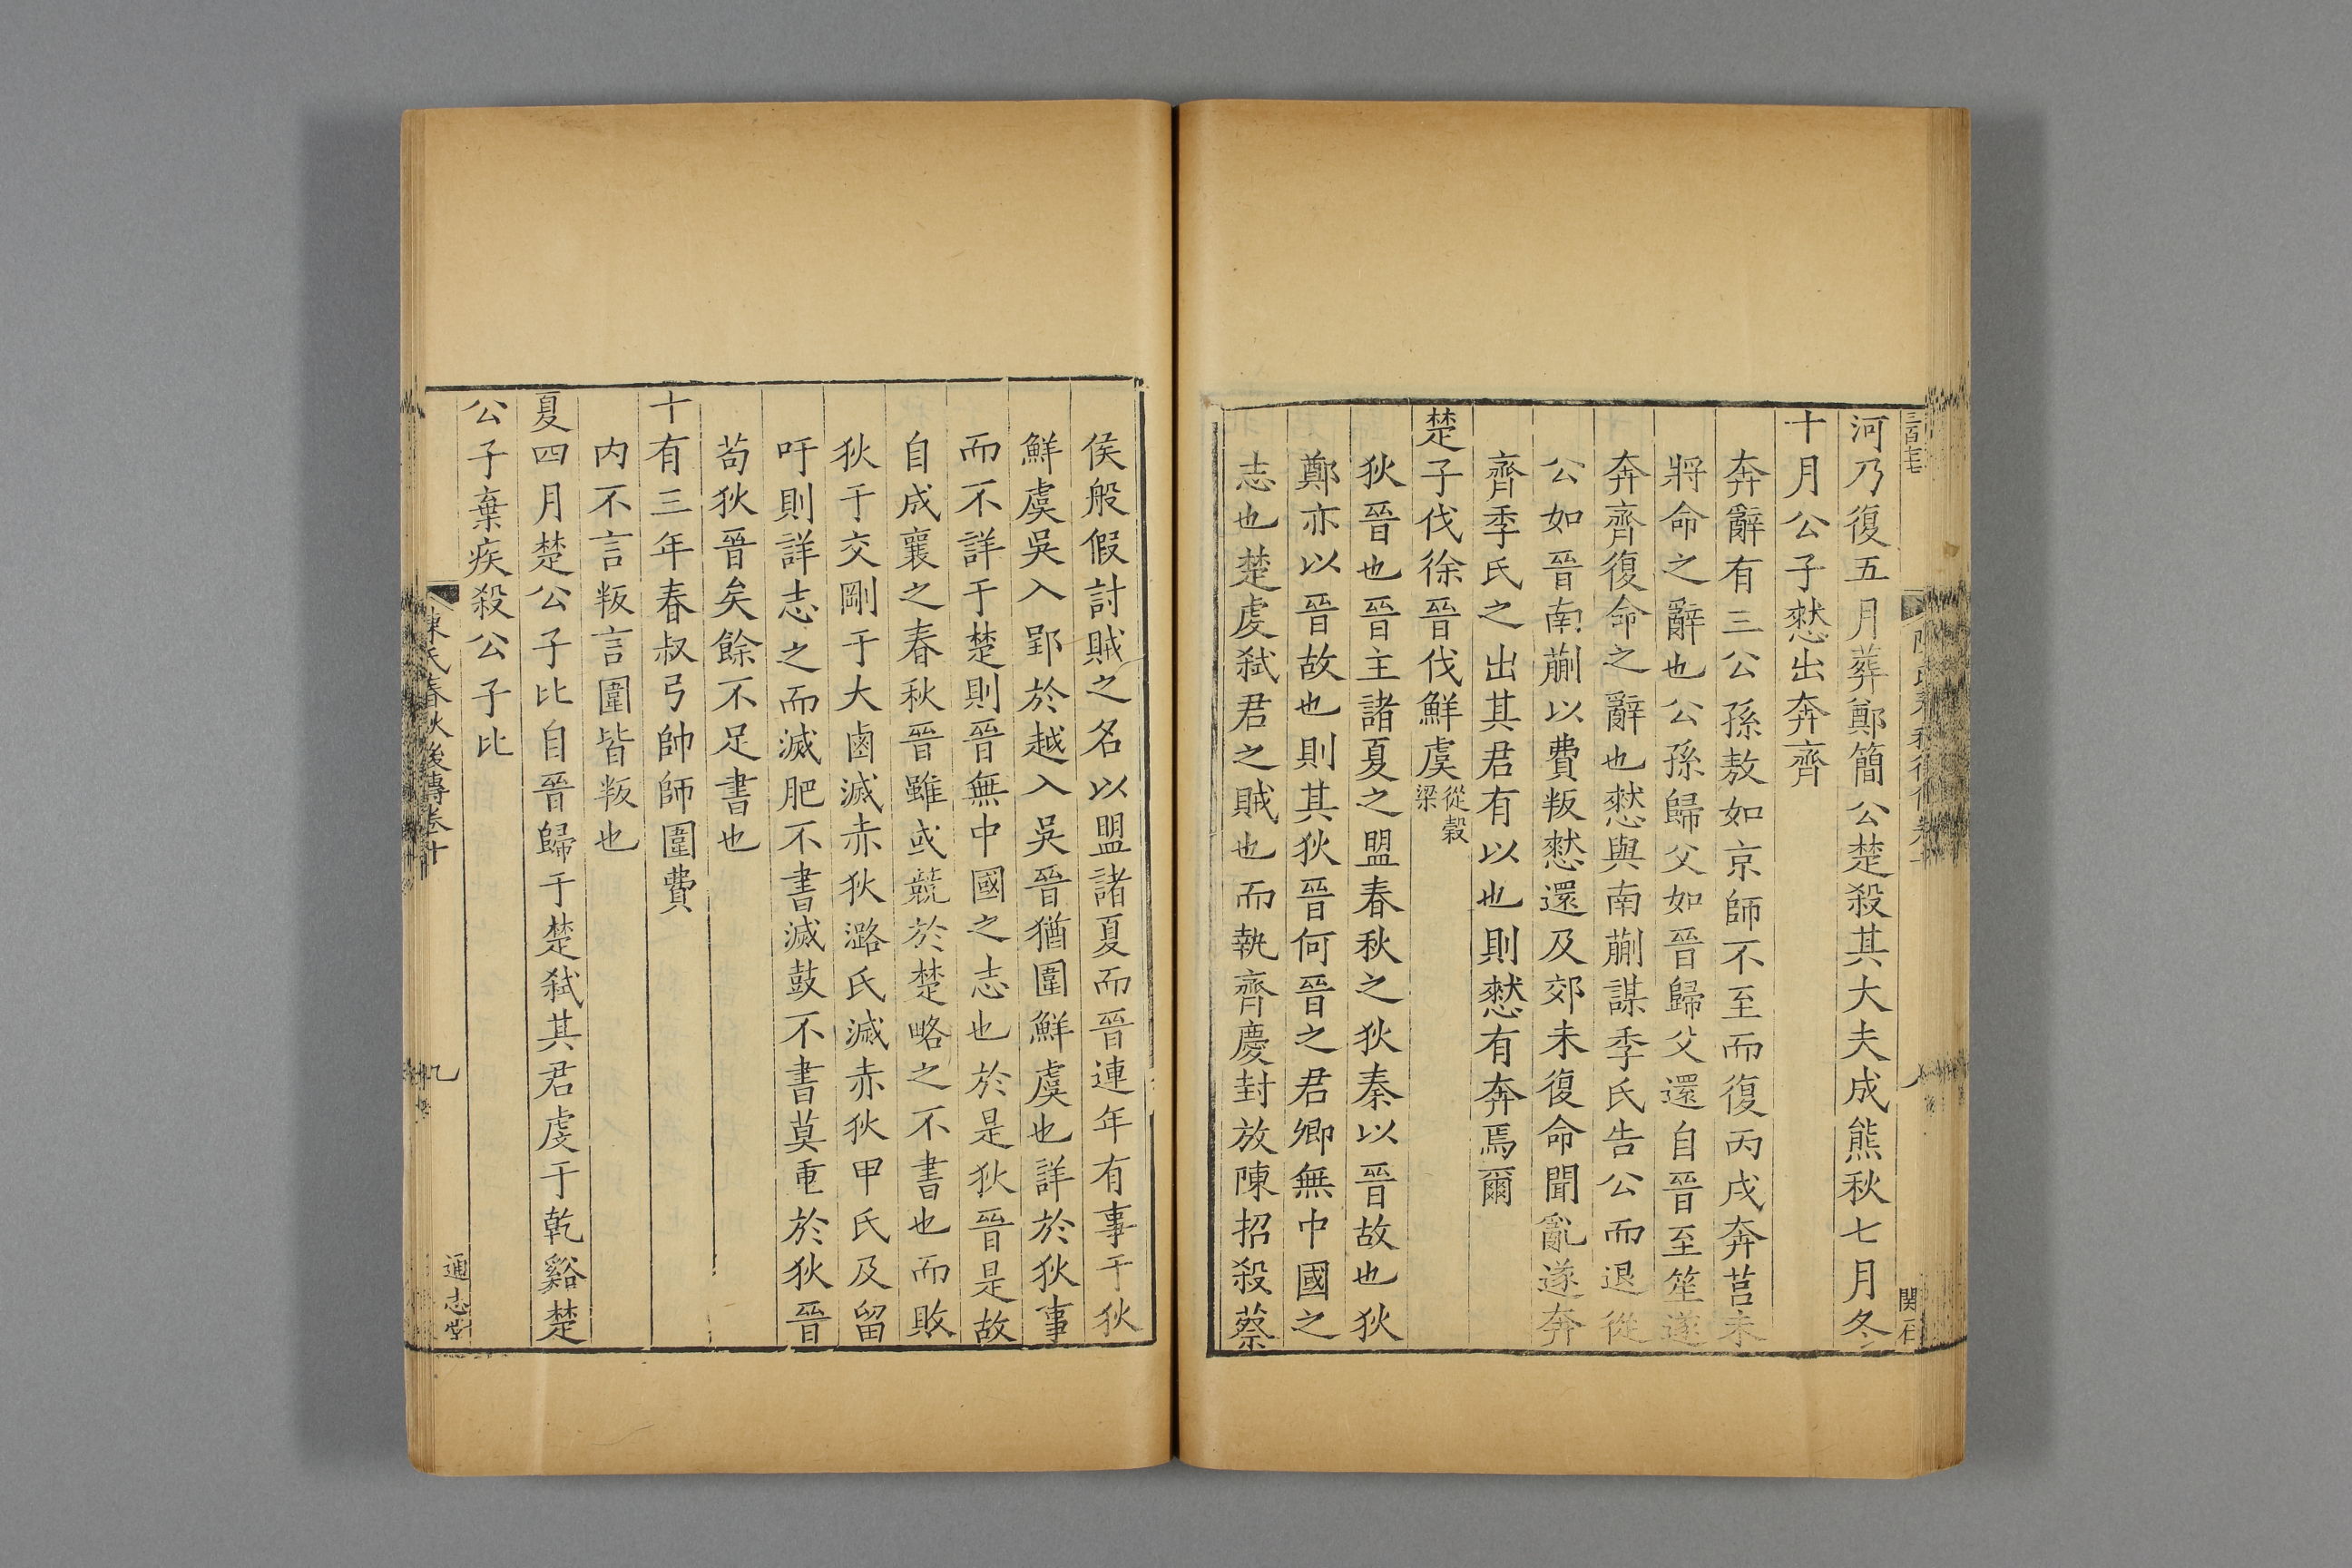 河乃復五月葬鄭簡公楚殺其大夫成熊秋七月冬
十月公子憖出奔齊
奔辭有三公孫敖如京師不至而復丙戌奔莒未
將命之辭也公孫歸父如晉歸父還自晉至笙遂
奔齊復命之辭也憖與南蒯謀季氏告公而退從
公如晉南蒯以費叛憖還及郊未復命聞亂遂奔
齊季氏之出其君有以也則憖有奔焉爾
楚子伐徐晉伐鮮虞從穀梁
狄晉也晉主諸夏之盟春秋之狄秦以晉故也狄
鄭亦以晉故也則其狄晉何晉之君卿無中國之
志也楚虔弒君之賊也而執齊慶封放陳招殺蔡
侯般假討賊之名以盟諸夏而晉連年有事于狄
鮮虞吳入郢於越入吳晉猶圍鮮虞也詳於狄事
而不詳于楚則晉無中國之志也於是狄晉是故
自成襄之春秋晉雖或競於楚略之不書也而敗
狄于交剛于大鹵滅赤狄潞氏滅赤狄甲氏及留
吁則詳志之而滅肥不書滅鼓不書莫重於狄晉
苟狄晉矣餘不足書也
十有三年春叔弓帥師圍費
內不言叛言圍皆叛也
夏四月楚公子比自晉歸于楚弒其君虔于乾谿楚
公子棄疾殺公子比
陳氏春秋後傳卷十
九
通志堂